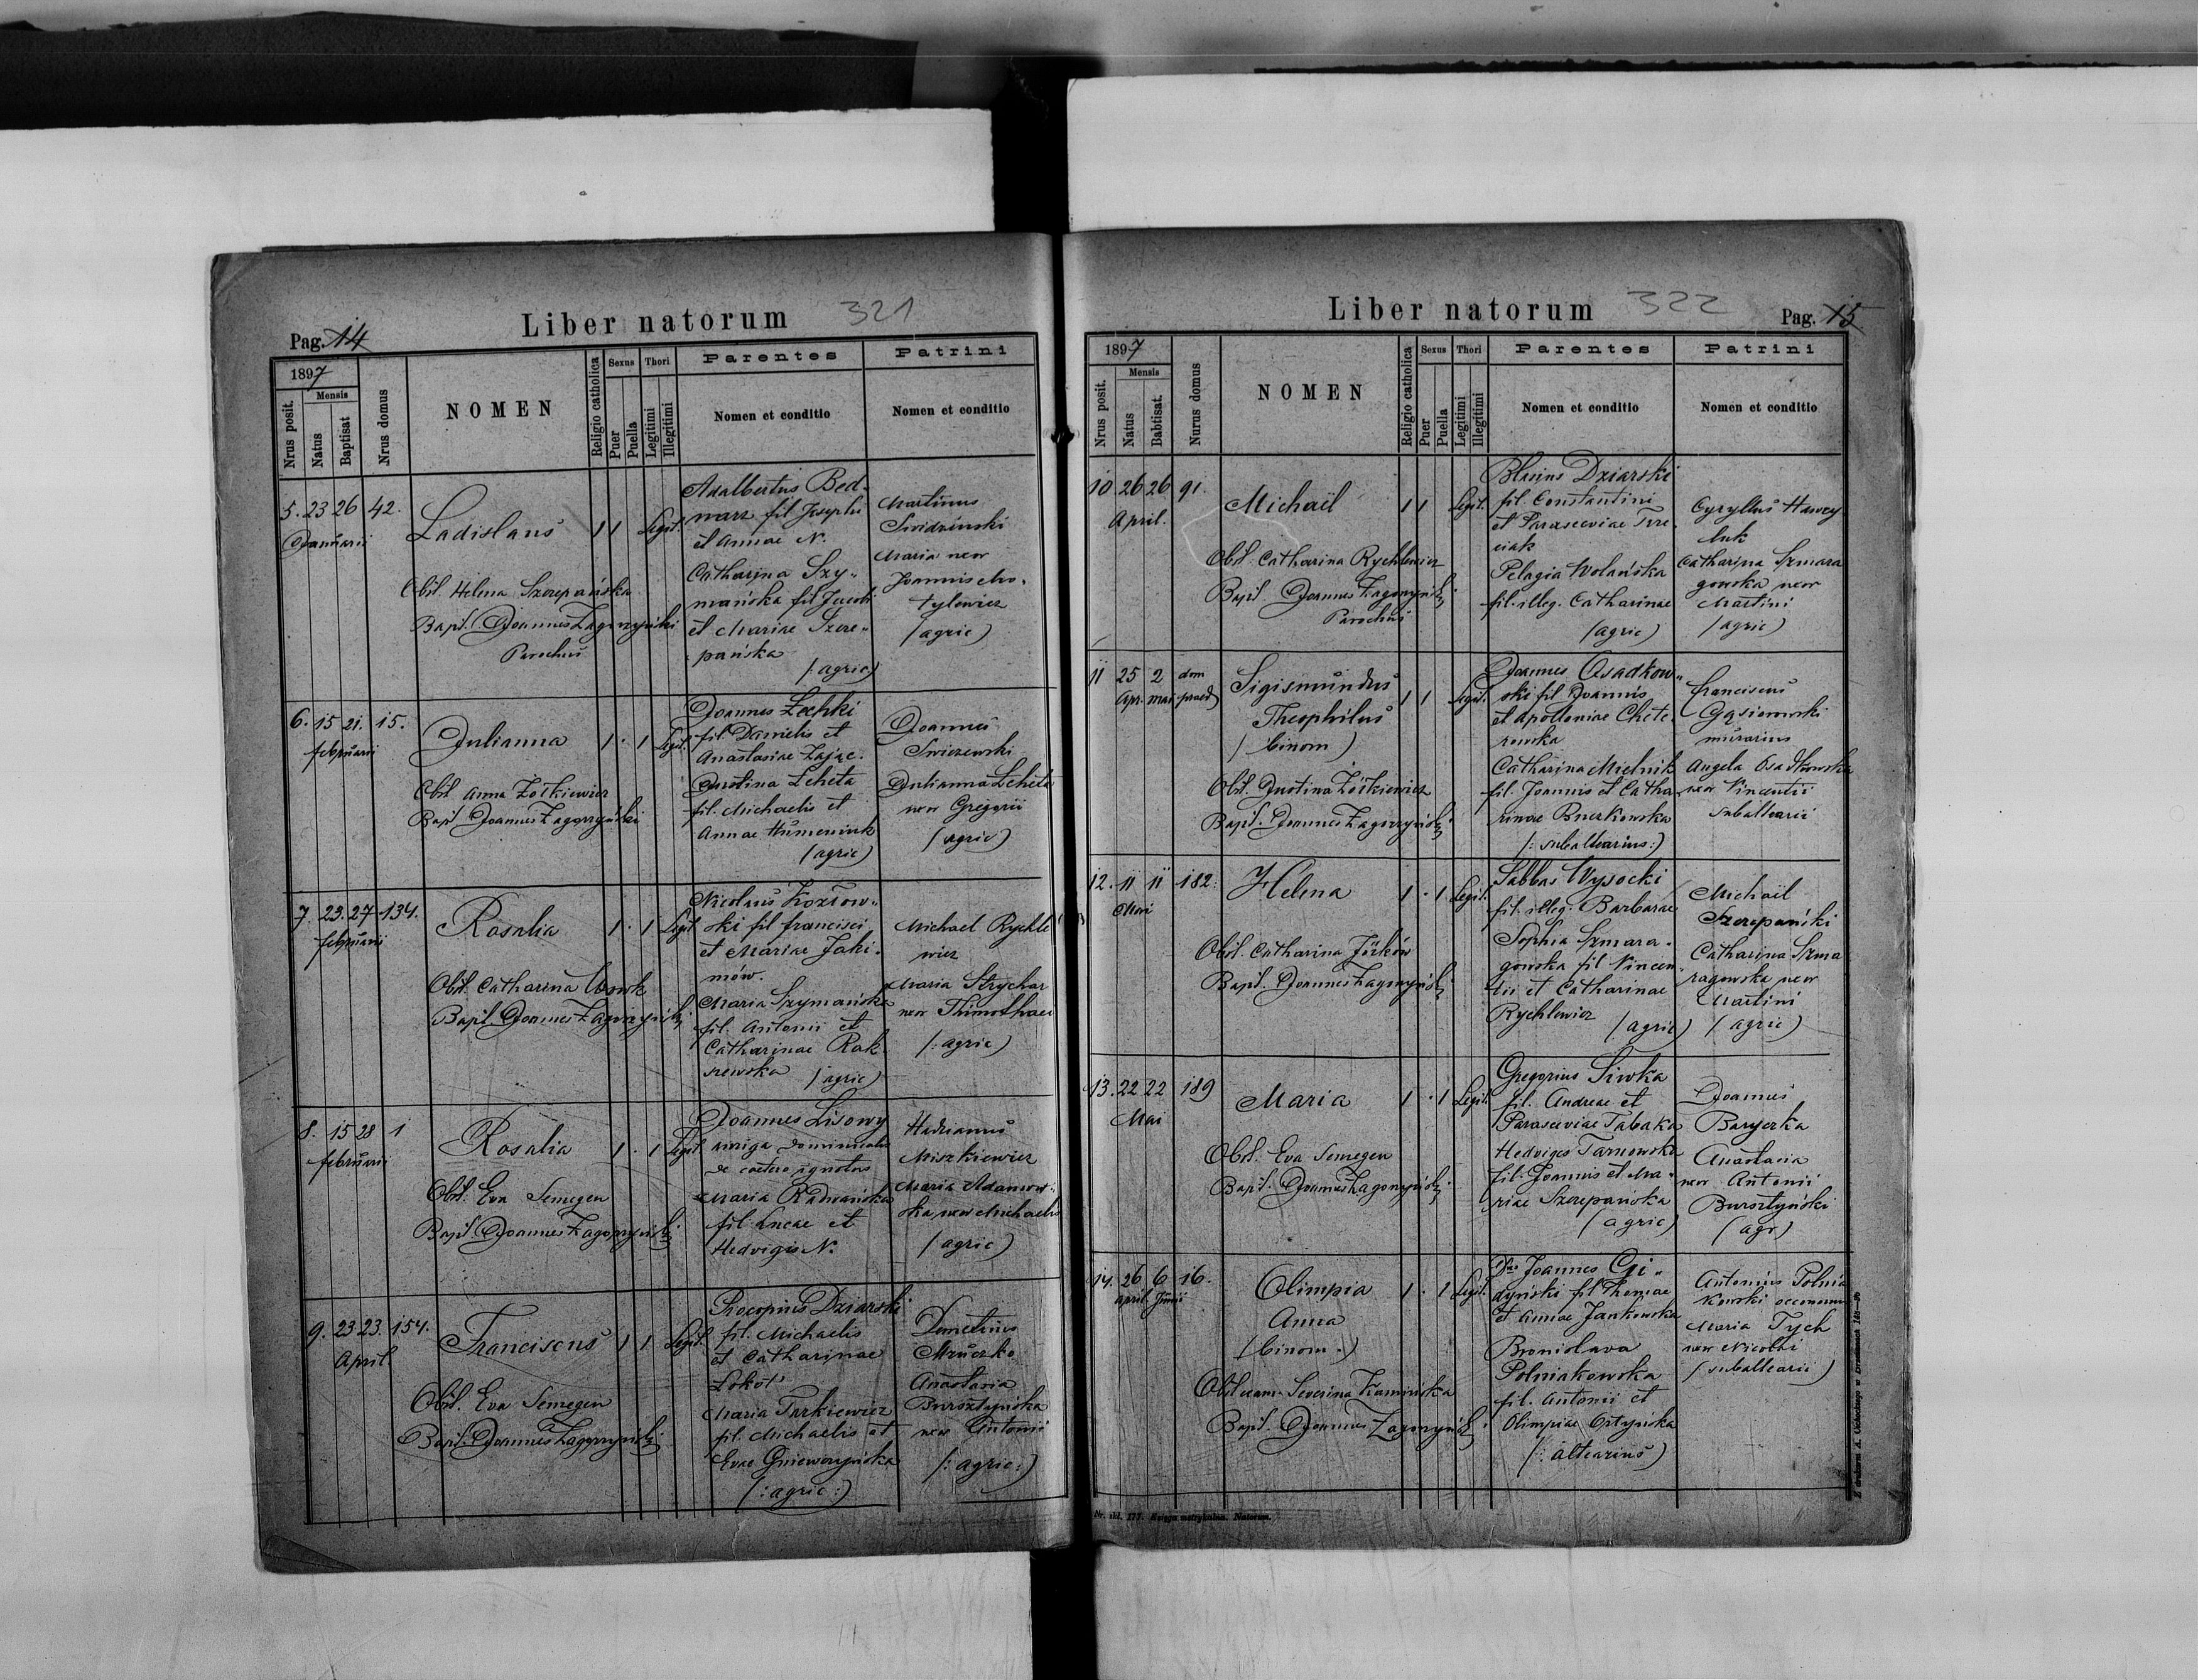 Liber natorum 321
Pag. 14
1897
Nrus posit.
Mensis
Natus
Baptisat
Nrus domus
NOMEN
Religio catholica
Sexus
Puer
Puella
Thori
Legitimi
Illegitimi
Parentes
Nomen et conditio
Patrini
Nomen et conditio
5. 23 26 42.
Januarii
Ladislaus
1 1 Legit.
Obst. Helena Szczepańska
Bapt. Joannes Zagorzyński
Parochus
Adalbertus Bed-
narz fil Josephi
et Annae N.
Catharina Szy-
mańska fil Jacobi
et Mariae Szcze-
pańska
(agric)
Martinus
Maria uxor
Joannis
(agric)
6. 15 21. 15.
februarii
Julianna
1 . 1 Legit.
Obst. Anna Żółkiewicz
Bapt. Joannes Zagorzyński
Joannes
fil Danielis et
Anastasiae Zając.
Justina Leheta
fil. Michaelis et
Annae Humeniuk
(agric)
Joannes
Julianna Leheta
uxor Gregorii
(agric)
7. 23. 27 134.
februarii
Rosalia
1 . 1 Legit
Obst. Catharina
Bapt. Joannes Zagorzyński
Nicolaus Kozłow-
ski fil francisci
et Mariae Jaki-
mów.
Maria Szymańska
fil. Antonii et
Catharinae Rak-
szewska (agric)
Michael Rychle
wicz
Maria Strychar
uxor Thimothaei
(agric)
8. 15 28 1
februarii
Rosalia
1 . 1 Legit
Obst. Eva Semegen
Bapt. Joannes Zagorzyński
Joannes Lisowy
auriga dominicalis
de caetero ignotus
Maria Radwańska
fil. Lucae et
Hedvigis N.
Hadrianus
Miszkiewicz
Maria Adamow-
ska uxor Michaelis
(agric)
9. 23 23. 154.
April
Franciscus
1 1 Legit.
Obst. Eva Semegen
Bapt. Joannes Zagorzyński
Procopius Dziarski
fil. Michaelis
et Catharinae
Łokot
Maria Tarkiewicz
fil. Michaelis et
Evae Gniewczyńska
(: agric :)
Demetrius
Mruczko
Anastasia
Bursztyńska
uxor Antonii
(: agric :)
Liber natorum 322
Pag. 15
1897
Nrus posit.
Mensis
Natus
Babtisat.
Nurus domus
NOMEN
Religio catholica
Sexus
Puer
Puella
Thori
Legitimi
Illegitimi
Parentes
Nomen et conditio
Patrini
Nomen et conditio
10 26 26 91.
April.
Michaël
1 1 Legit.
Obst. Catharina Rychlewicz
Bapt. Joannes Zagorzyński
Parochus
Blasius Dziarski
fil. Constantini
et Parasceviae Tre-
ciak
Pelagia Wolańska
fil. illeg. Catharinae
(agric)
Cyryllus Hawry
luk
Catharina Szmara
gowska uxor
Martini
(agric)
11 25 2 dom
Apr. mai praed
Sigismundus
Theophilus
(binom)
1 1 Legit.
Obst. Justina Żółkiewicz
Bapt. Joannes Zagorzyński
Joannes Osadkow-
ski fil Joannis
et Apolloniae Chete-
rowska
Catharina Mielnik
fil. Joannis et Catha-
rinae Buczkowska
(: subaltearius :)
Franciscus
Gąsiorowski
murarius
Angela Osadkowska
uxor Vincentii
subaltearii
12. 11 11 182.
Mai
Helena
1 . 1 Legit.
Obst. Catharina Jurków
Bapt. Joannes Zagorzyński
Sabbas Wysocki
fil. illeg. Barbarae
Sophia Szmara-
gowska fil Vincen-
tii et Catharinae
Rychlewicz
(agric)
Michaël
Szczepański
Catharina Szma
ragowska uxor
Martini
(agric)
13. 22 22 189
Mai
Maria
1 . 1 Legit.
Obst. Eva Semegen
Bapt. Joannes Zagorzyński
Gregorius Siwka
fil. Andreae et
Parasceviae Tabaka
Hedviges Tarnowska
fil. Joannis et Ma-
riae Szczepańska
(agric)
Joannes
Baryczka
Anastasia
uxor Antonii
Bursztyński
(agr)
14. 26 6 16.
April Junii
Olimpia
Anna
(binom.)
1 . 1 Legit.
Obst exam. Severina Kamińska
Bapt. Joannes Zagorzyński
Joannes
fil Thomae
et Annae Jankowska
Bronislava
Polniakowska
fil. Antonii et
Olimpiae Ortyńska
(: altearius)
Antonius Polnia
kowski oeconom
Maria Tych
uxor Nicolai
(subaltearii)
Nr. skł. 177. Księga metrykalna. Natorum.